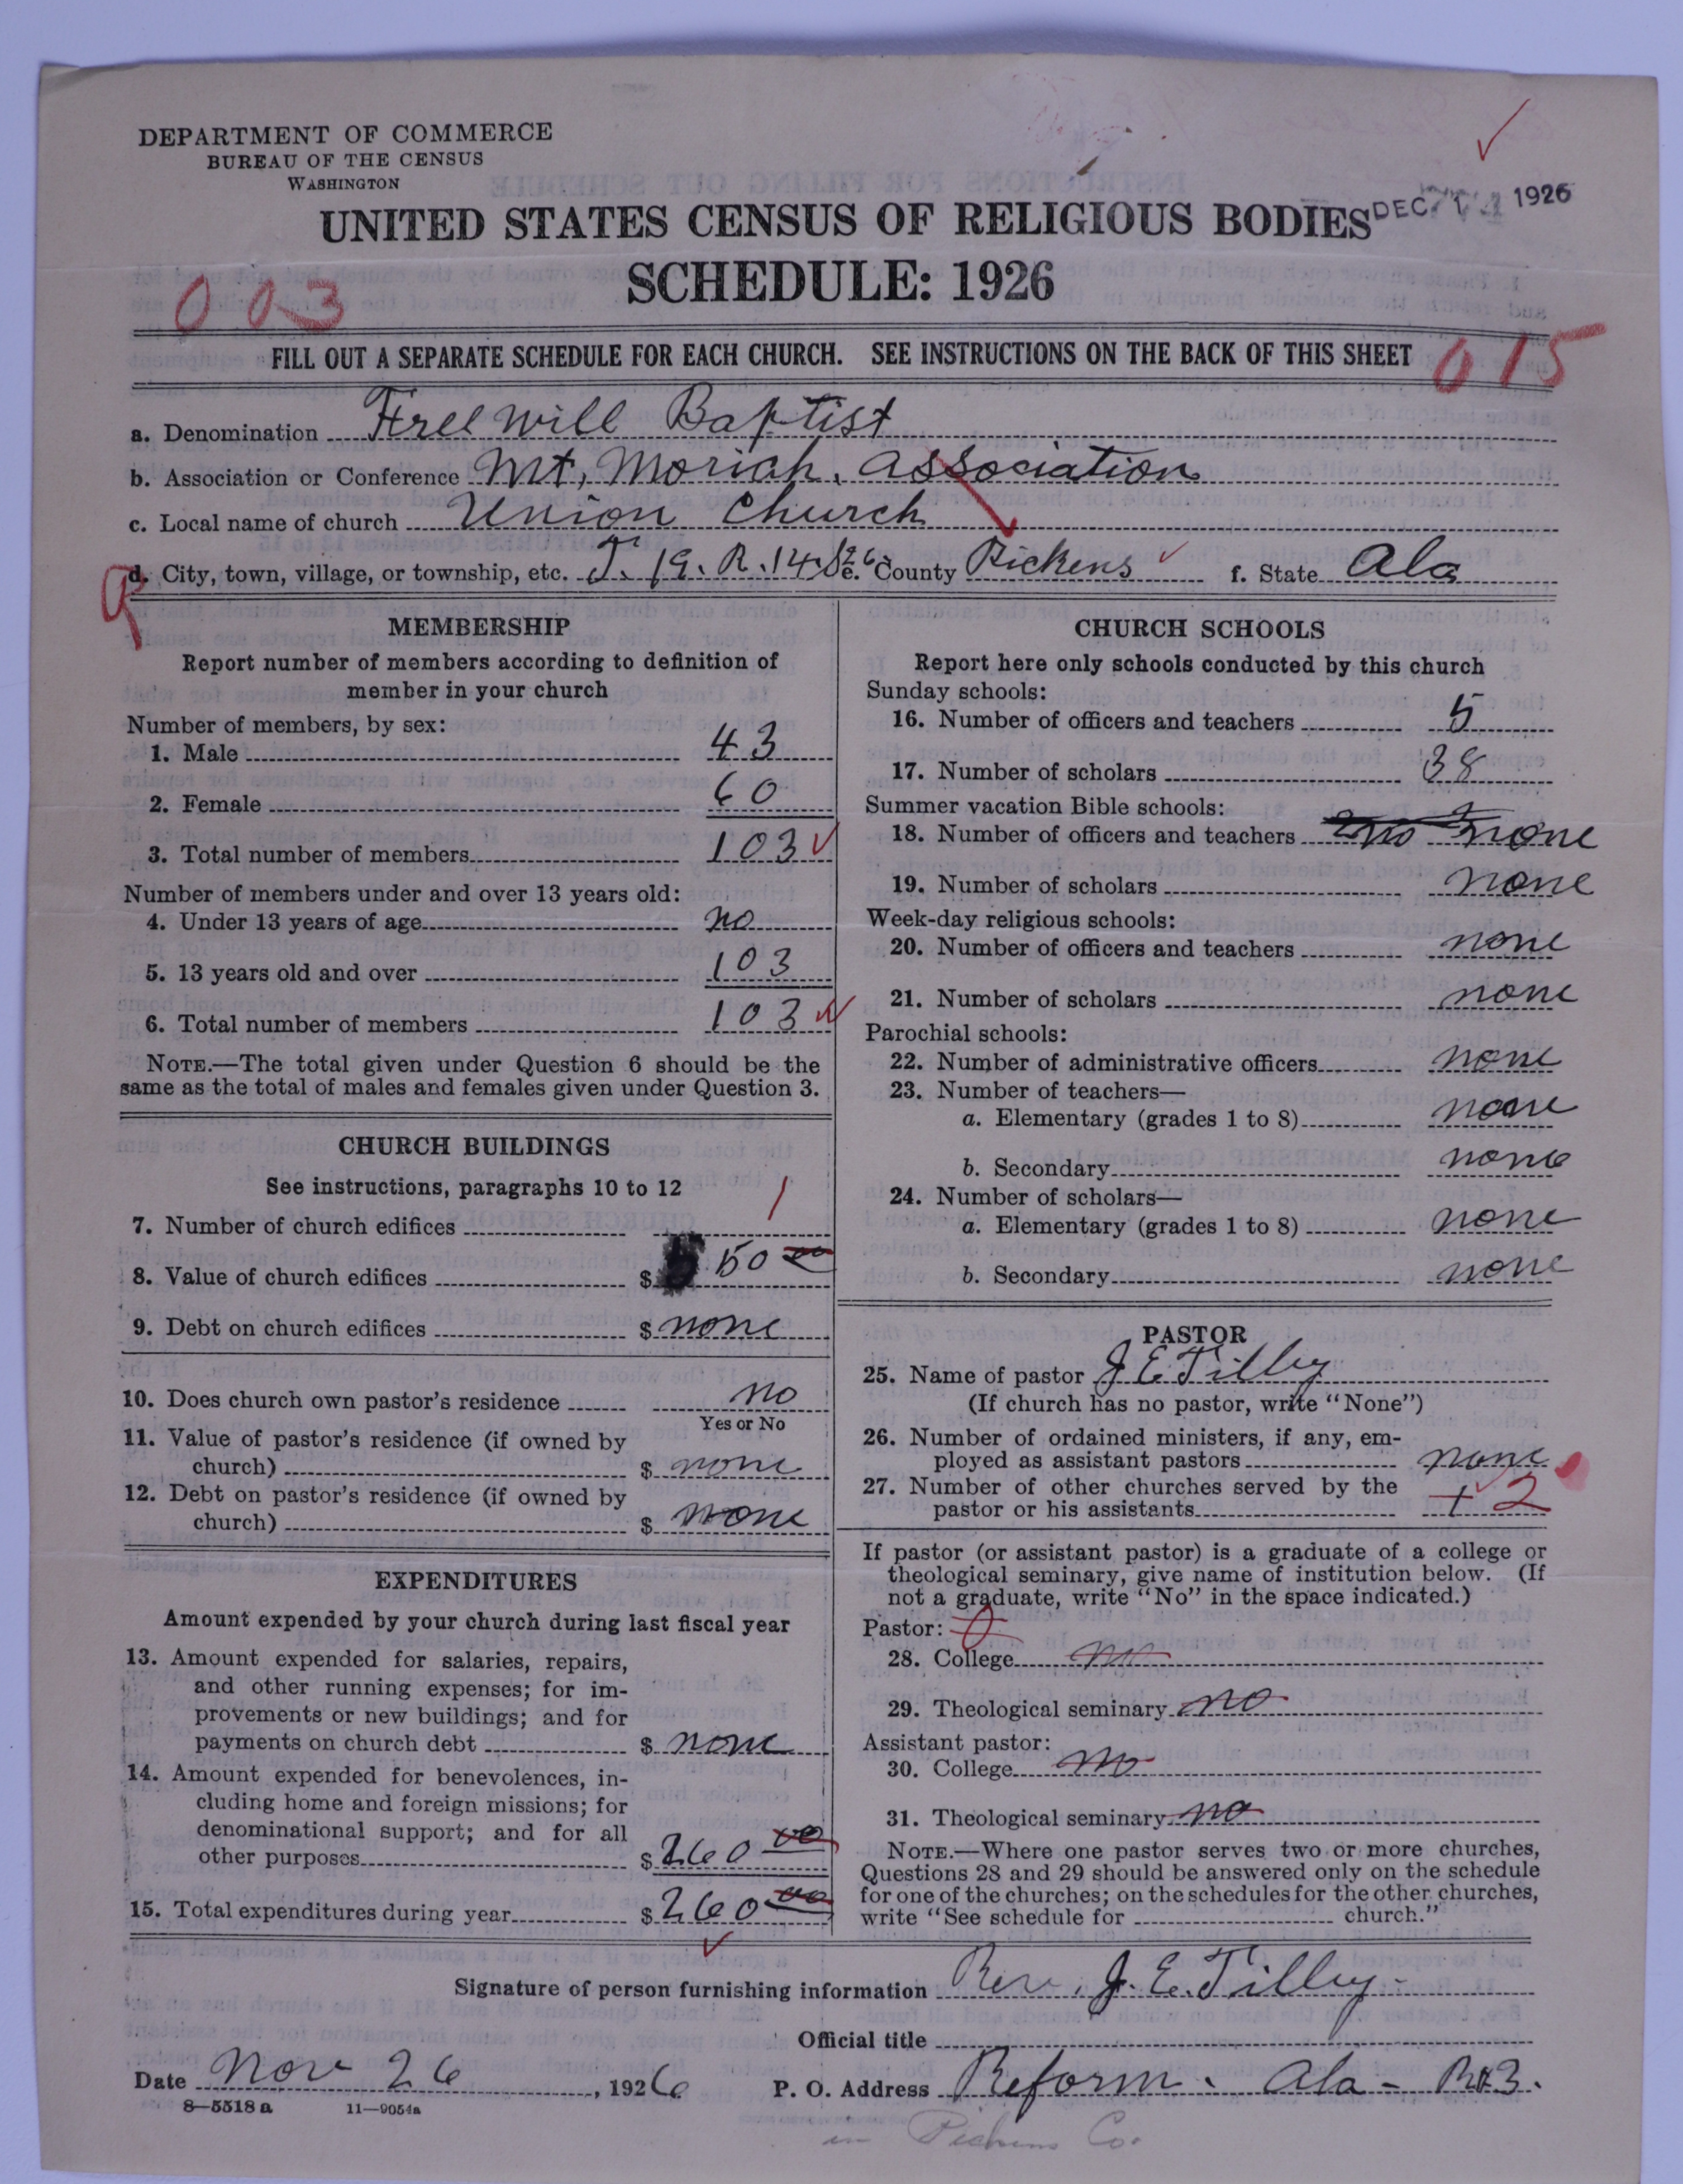 DEPARTMENT OF COMMERCE
BUREAU OF THE CENSUS
WASHINGTON
DEC 1926
UNITED STATES CENSUS OF RELIGIOUS BODIES
SCHEDULE: 1926
003
FILL OUT A SEPARATE SCHEDULE FOR EACH CHURCH. SEE INSTRUCTIONS ON THE BACK OF THIS SHEET
015
a. Denomination Free Will Baptist
b. Association or Conference Mt, Moriah. Association
c. Local name of church Union Church
d. City, town, village, or township, etc. T. 19. R. 14. S 26 e. County Pickens f. State Ala
MEMBERSHIP
Report number of members according to definition of
member in your church
Number of members, by sex:
1. Male 43
2. Female 60
3. Total number of members 103
Number of members under and over 13 years old:
4. Under 13 years of age no
5. 13 years old and over 103
6. Total number of members 103
NOTE.—The total given under Question 6 should be the
same as the total of males and females given under Question 3.
CHURCH BUILDINGS
See instructions, paragraphs 10 to 12
7. Number of church edifices 1
8. Value of church edifices $ 50 00
9. Debt on church edifices $ none
10. Does church own pastor's residence no
Yes or No
11. Value of pastor's residence (if owned by
church) $ none
12. Debt on pastor's residence (if owned by
church) $ none
EXPENDITURES
Amount expended by your church during last fiscal year
13. Amount expended for salaries, repairs,
and other running expenses; for im-
provements or new buildings; and for
payments on church debt $ none
14. Amount expended for benevolences, in-
cluding home and foreign missions; for
denominational support; and for all
other purposes $ 260 00
15. Total expenditures during year $ 260 00
CHURCH SCHOOLS
Report here only schools conducted by this church
Sunday schools:
16. Number of officers and teachers 5
17. Number of scholars 38
Summer vacation Bible schools:
18. Number of officers and teachers no none
19. Number of scholars none
Week-day religious schools:
20. Number of officers and teachers none
21. Number of scholars none
Parochial schools:
22. Number of administrative officers none
23. Number of teachers—
a. Elementary (grades 1 to 8) none
b. Secondary none
24. Number of scholars—
a. Elementary (grades 1 to 8) none
b. Secondary none
PASTOR
25. Name of pastor J E Tilley
(If church has no pastor, write "None")
26. Number of ordained ministers, if any, em-
ployed as assistant pastors none
27. Number of other churches served by the
pastor or his assistants + 2
If pastor (or assistant pastor) is a graduate of a college or
theological seminary, give name of institution below. (If
not a graduate, write "No" in the space indicated.)
Pastor: 0
28. College no
29. Theological seminary no
Assistant pastor:
30. College no
31. Theological seminary no
NOTE.—Where one pastor serves two or more churches,
Questions 28 and 29 should be answered only on the schedule
for one of the churches; on the schedules for the other churches,
write "See schedule for church."
Signature of person furnishing information Rev. J. E. Tilley
Official title
Date Nov 26, 1926 P. O. Address Reform. Ala - R#3.
8—5518 a 11—9054a
in Pickens Co.